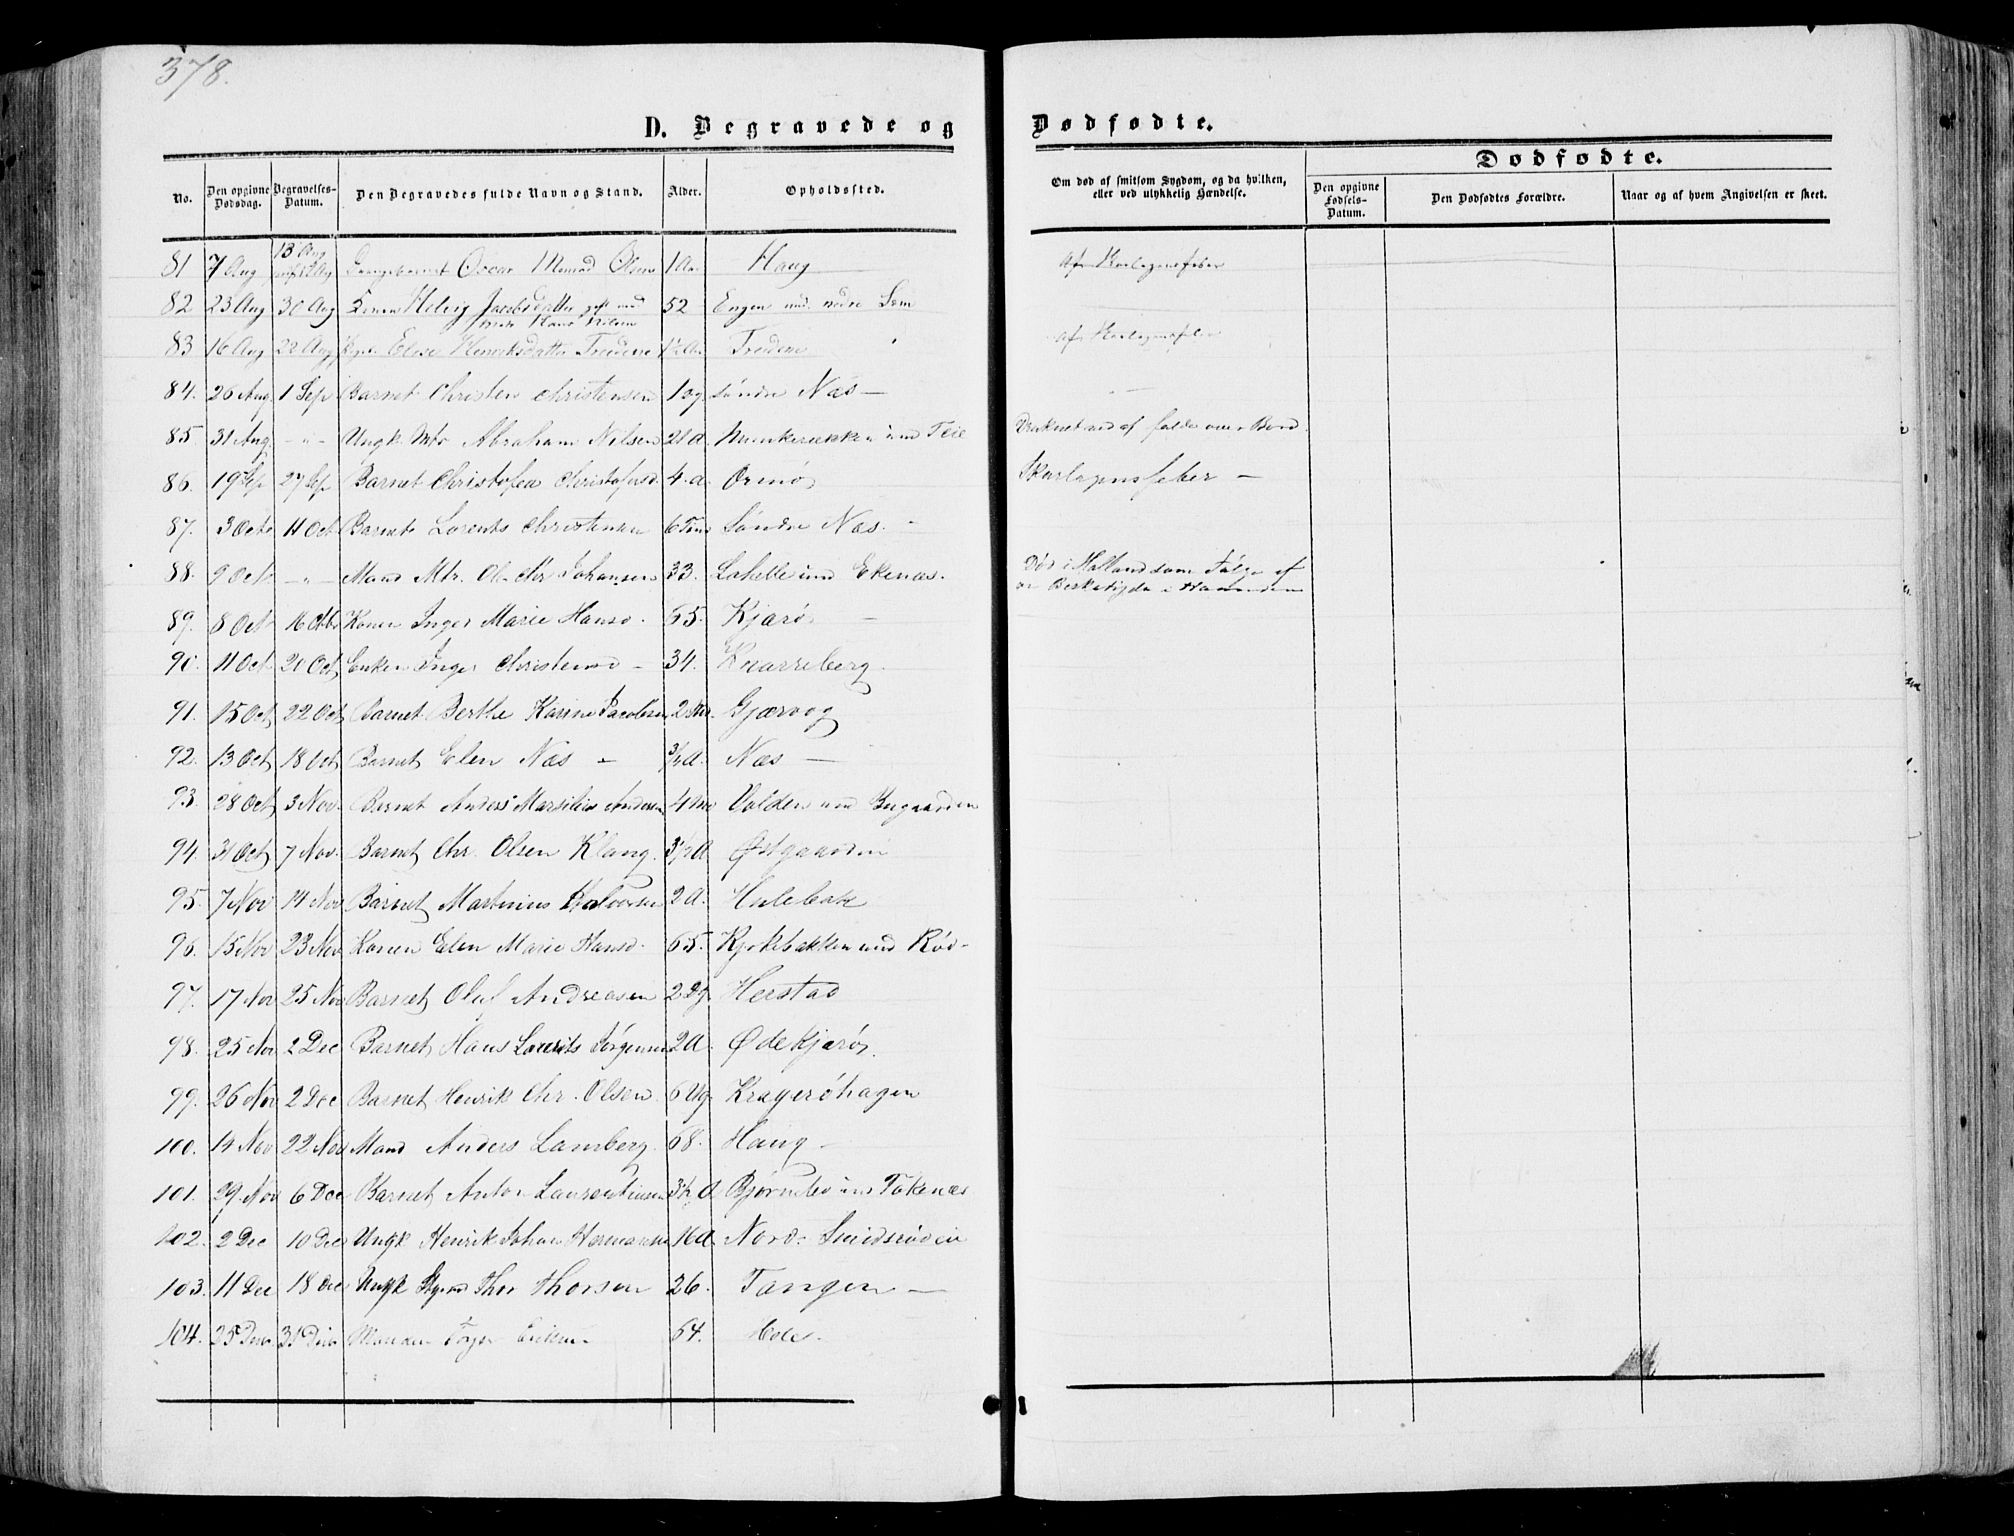 378.
D. Begravede og Dødfødte.
Dødfødte.
No. Den opgivne Dødsdag. Begravelses-Datum. Den Begravedes fulde Navn og Stand. Alder. Opholdssted. Om død af smitsom Sygdom, og da hvilken, eller ved ulykkelig Hændelse. Den opgivne Fødsels-Datum. Den Dødfødtes Forældre. Naar og af hvem Angivelsen er skeet.
81 7 Aug 13 Aug Oscar Olsen 1 Aar Haug af Skarlagensfeber
82 23 Aug 30 Aug Konen Helvig Jacobsdatter gift med Hans Nilsen 52 Engen und. nedre Sem
83 16 Aug 22 Aug Pige Elise Henriksdatter Tredene 1½ Aar Tredene af Skarlagensfeber
84. 26 Aug. 1 Sep Barnet Christen Christensen 1 Dg. Søndre Næs —
85 31 Aug — " — Ungk. Mtr Abraham Nilsen 21 A. und Teie Druknet ved at falde over Bord.
86. 19 Sep 27 Sep Barnet Christofea Christofersd. 4. A. Ormø Skarlagensfeber —
87. 3 Octr 11 Oct Barnet Lorents Christensen 6 Søndre Næs. —
88. 9 Oct — " — Mand Mtr. Ole Chr Johansen 33. Lahelle und Ekenæs. Død i Holland som Følge af
89. 8 Oct 16 Octbr Konen Inger Marie Hansd. 65. Kjærø —
90. 11 Oct 20 Oct Enken Inger Christensd — 34. Knarreberg.
91. 15 Oct 22 Oct Barnet Berthe Karine Jacobsen 2 Mr. Gjærvog
92. 13 Oct 18 Oct Barnet Elen Næs — ¾ A. Næs —
93. 28 Oct 3 Nov. Barnet Anders Marsilius Andersen 4 Mr Volden und Bugaarden
94. 31 Oct 7 Nov. Barnet Chr. Olsen Klang. 3½ A Østgaarden
95. 7 Nov 14 Nov Barnet Martinius Halvorsen 2 A. Hulebak
96. 15 Nov 23 Nov Konen Elen Marie Hansd. 65. und Rød—
97. 17 Nov 25 Nov Barnet Oluf Andreasen 2 Dg. Herstad
98. 25 Nov 2 Dec Barnet Hans Laurits Jørgensen 2 A. Ødekjærø.
99. 26 Nov 2 Dec Barnet Henrik Chr. Olsen. 6 Ug. Kragerøhagen
100. 14 Nov 22 Nov Mand Anders Lamberg. 68. Haug —
101. 29 Nov 6 Dec Barnet Anton Laurentiusen 3½ A Bjørnebo
102. 2 Dec 10 Dec Ungk Henrik Johan Hermansen 16 A. Nord: Smidsrøden
103. 11 Dec 18 Dec Ungk Thor Thorsen 26. Tangen —
104. 25 Decbr. 31 Decbr Manden Eriksen 64. Holo.